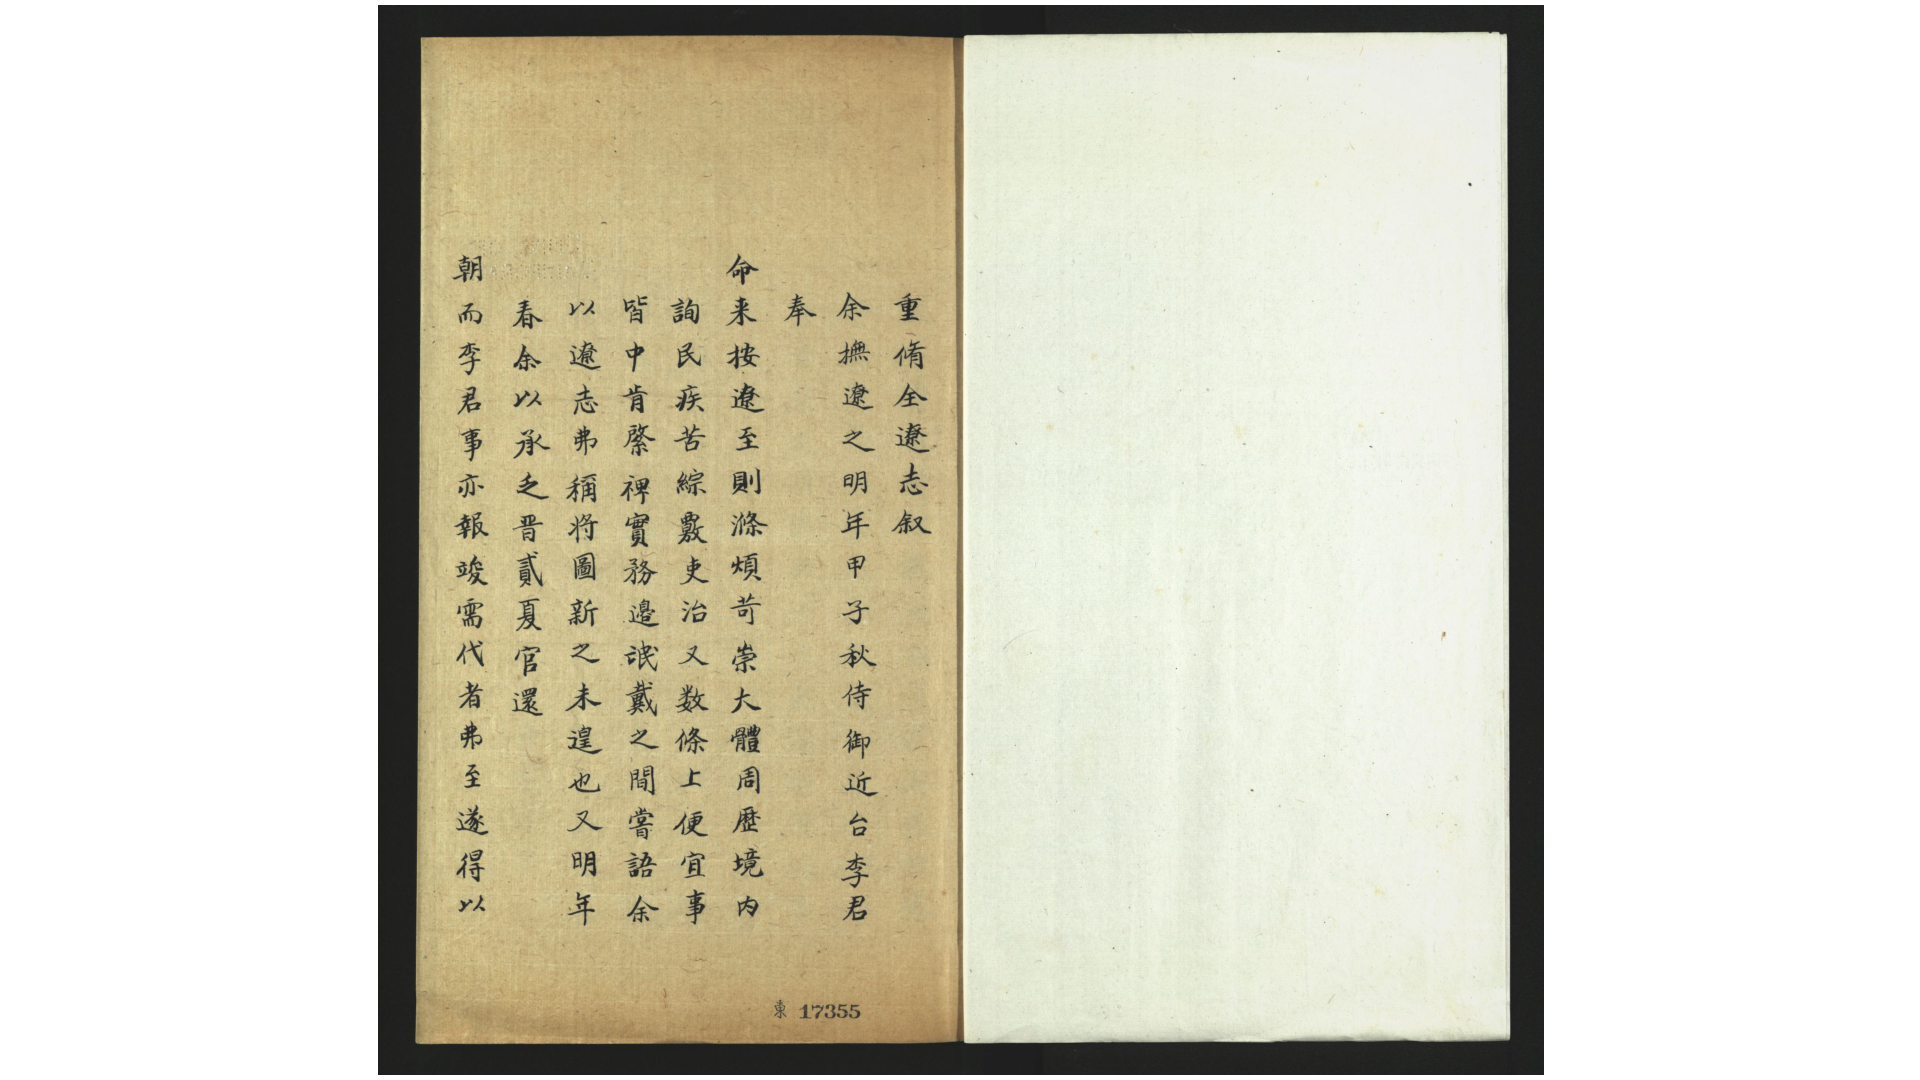 重脩全遼志叙
余撫遼之明年甲子秋侍御近台李君
奉
命来按遼至則滌煩苛崇大體周歷境内
詢民疾苦綜覈吏治又数條上便宜事
皆中肯綮裨實務邉氓戴之間嘗語余
以遼志弗稱将圖新之未遑也又明年
春余以承乏晋貳夏官還
朝而李君事亦報竣需代者弗至遂得以
東 17355